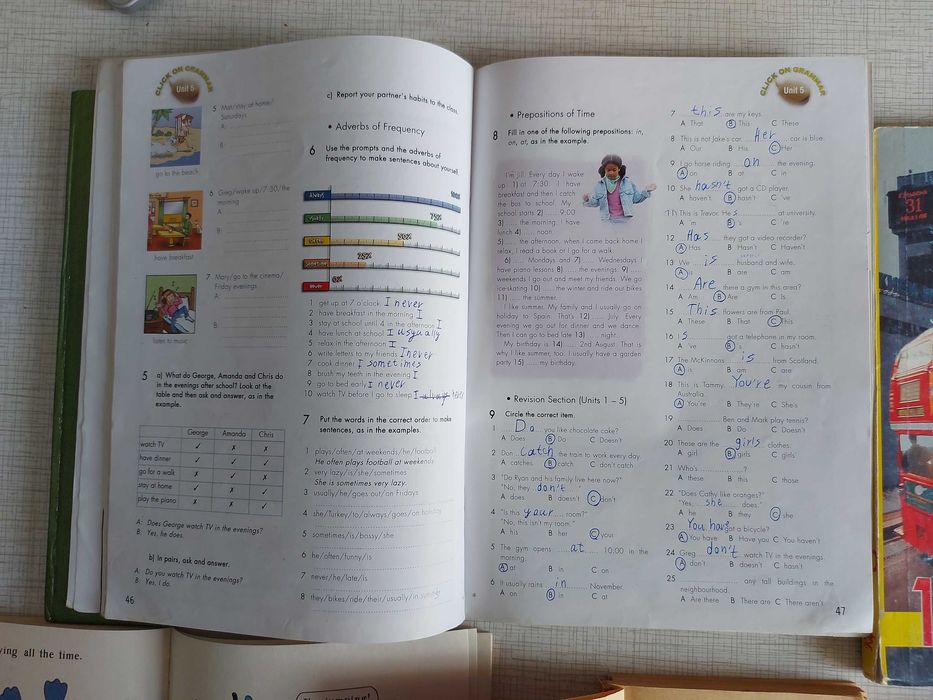 CLICK ON GRAMMAR
Unit 5
5 Mat/stay at home/
Saturdays
A:
B:
go to the beach
6 Greg/wake up/7:30/the
morning
A:
B:
have breakfast
7 Mary/go to the cinema/
Friday evenings
A:
B:
listen to music
5 a) What do George, Amanda and Chris do
in the evenings after school? Look at the
table and then ask and answer, as in the
example.
George Amanda Chris
watch TV ✓ ✗ ✗
have dinner ✓ ✓ ✓
go for a walk ✗ ✓ ✗
stay at home ✓ ✗ ✓
play the piano ✗ ✗ ✓
A: Does George watch TV in the evenings?
B: Yes, he does.
b) In pairs, ask and answer.
A: Do you watch TV in the evenings?
B: Yes, I do.
46
c) Report your partner's habits to the class.
• Adverbs of Frequency
6 Use the prompts and the adverbs of
frequency to make sentences about yourself.
Always 100%
Usually 75%
Often 50%
Sometimes 25%
Never 0%
1 get up at 7 o'clock I never
2 have breakfast in the morning I
3 stay at school until 4 in the afternoon I
4 have lunch at school I usyually
5 relax in the afternoon I
6 write letters to my friends I never
7 cook dinner I sometimes
8 brush my teeth in the evening I
9 go to bed early I never
10 watch TV before I go to sleep I always
7 Put the words in the correct order to make
sentences, as in the examples.
1 plays/often/at weekends/he/football
He often plays football at weekends.
2 very lazy/is/she/sometimes
She is sometimes very lazy.
3 usually/he/goes out/on Fridays
4 she/Turkey/to/always/goes/on holiday
5 sometimes/is/bossy/she
6 he/often/funny/is
7 never/he/late/is
8 they/bikes/ride/their/usually/in summer
• Prepositions of Time
8 Fill in one of the following prepositions: in,
on, at, as in the example.
I'm Jill. Every day I wake
up 1) at 7:30. I have
breakfast and then I catch
the bus to school. My
school starts 2) 9:00
3) the morning. I have
lunch 4) noon.
5) the afternoon, when I come back home I
relax. I read a book or I go for a walk.
6) Mondays and 7) Wednesdays I
have piano lessons 8) the evenings. 9)
weekends I go out and meet my friends. We go
ice-skating 10) the winter and ride our bikes
11) the summer.
I like summer. My family and I usually go on
holiday to Spain. That's 12) July. Every
evening we go out for dinner and we dance.
Then I can go to bed late 13) night.
My birthday is 14) 2nd August. That is
why I like summer, too. I usually have a garden
party 15) my birthday.
• Revision Section (Units 1 – 5)
9 Circle the correct item.
1 Do you like chocolate cake?
A Does B Do C Doesn't
2 Don catch the train to work every day.
A catches B catch C don't catch
3 "Do Ryan and his family live here now?"
"No, they don't."
A does B doesn't C don't
4 "Is this your room?"
"No, this isn't my room."
A his B her C your
5 The gym opens at 10:00 in the
morning.
A at B in C on
6 It usually rains in November.
A on B in C at
CLICK ON GRAMMAR
Unit 5
7 this are my keys.
A That B This C These
8 This is not Jake's car. Her car is blue.
A Our B His C Her
9 I go horse riding on the evening.
A on B at C in
10 She hasn't got a CD player.
A haven't B hasn't C 've
11 This is Trevor. He s at university.
A 'm B 's C 're
12 Has they got a video recorder?
A Has B Hasn't C Haven't
13 We is husband and wife.
A is B are C am
14 Are there a gym in this area?
A Am B Are C Is
15 This flowers are from Paul.
A These B That C This
16 I s got a telephone in my room.
A 've B 's C hasn't
17 The McKinnons is from Scotland.
A is B am C are
18 This is Tammy. You're my cousin from
Australia.
A You're B They're C She's
19 Ben and Mark play tennis?
A Does B Do C Doesn't
20 These are the girls clothes.
A girl B girls C girls'
21 Who's ?
A these B this C those
22 "Does Cathy like oranges?"
"Yes, she does."
A he B they C she
23 You have got a bicycle?
A You have B Have you C You haven't
24 Greg don't watch TV in the evenings.
A don't B doesn't C hasn't
25 any tall buildings in the
neighbourhood.
A Are there B There are C There aren't
47
31
ying all the time.